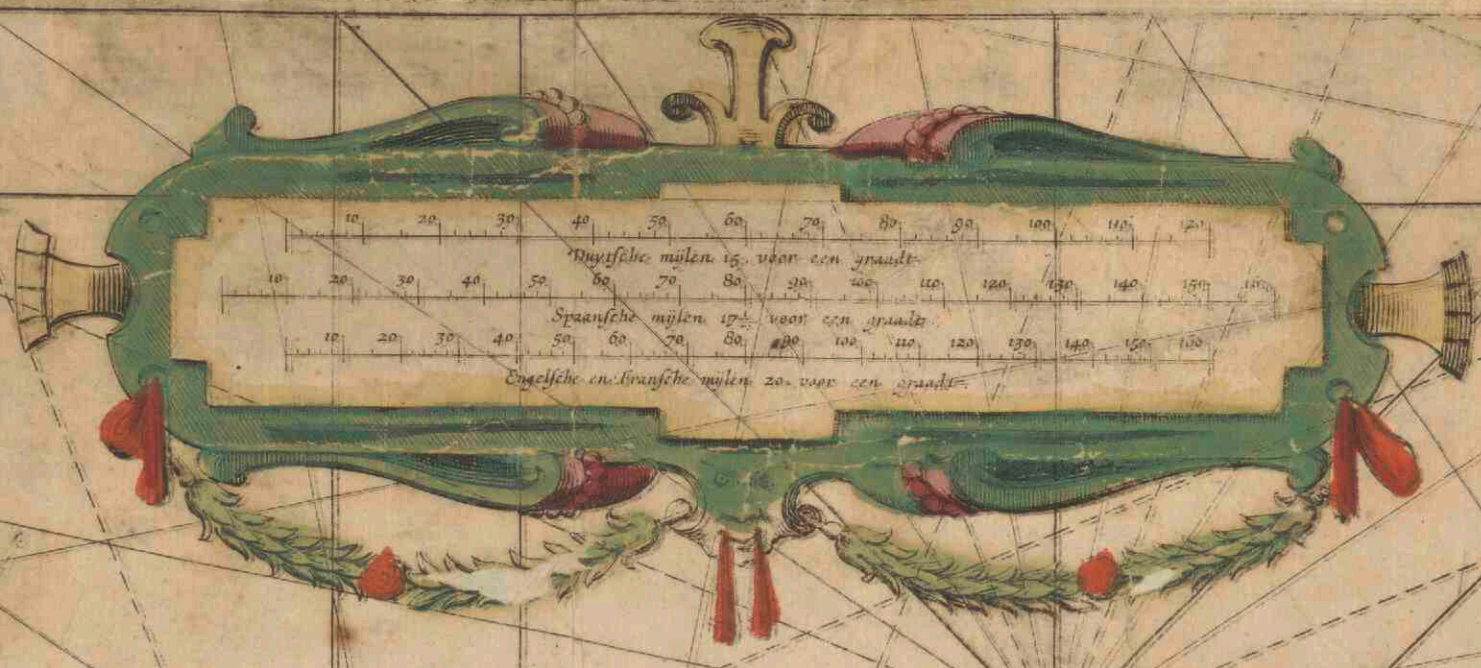 10 20 30 40 50 60 70 80 90 100 110 120
Duytsche mijlen 15 voor een graadt
10 20 30 40 50 60 70 80 90 100 110 120 130 140 150 160
Spaansche mijlen 17½ voor een graadt
10 20 30 40 50 60 70 80 90 100 110 120 130 140 150 160
Engelsche en Fransche mijlen 20 voor een graadt